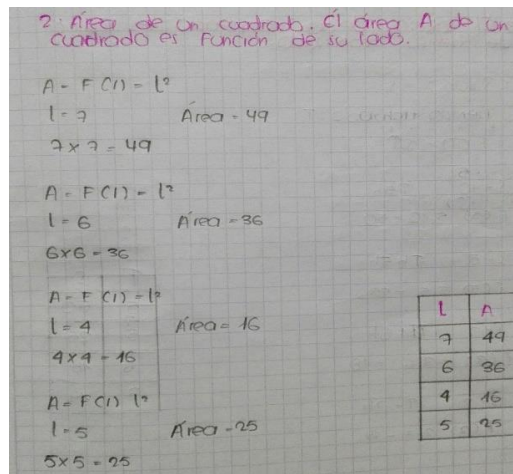 2. Área de un cuadrado. El área A de un
cuadrado es función de su lado.
A = F (l) = l²
l = 7 Área = 49
7 x 7 = 49
A = F (l) = l²
l = 6 Área = 36
6x6 = 36
A = F (l) = l²
l = 4 Área = 16
4x4 = 16
A = F (l) l²
l = 5 Área = 25
5x5 = 25
l A
7 49
6 36
4 16
5 25